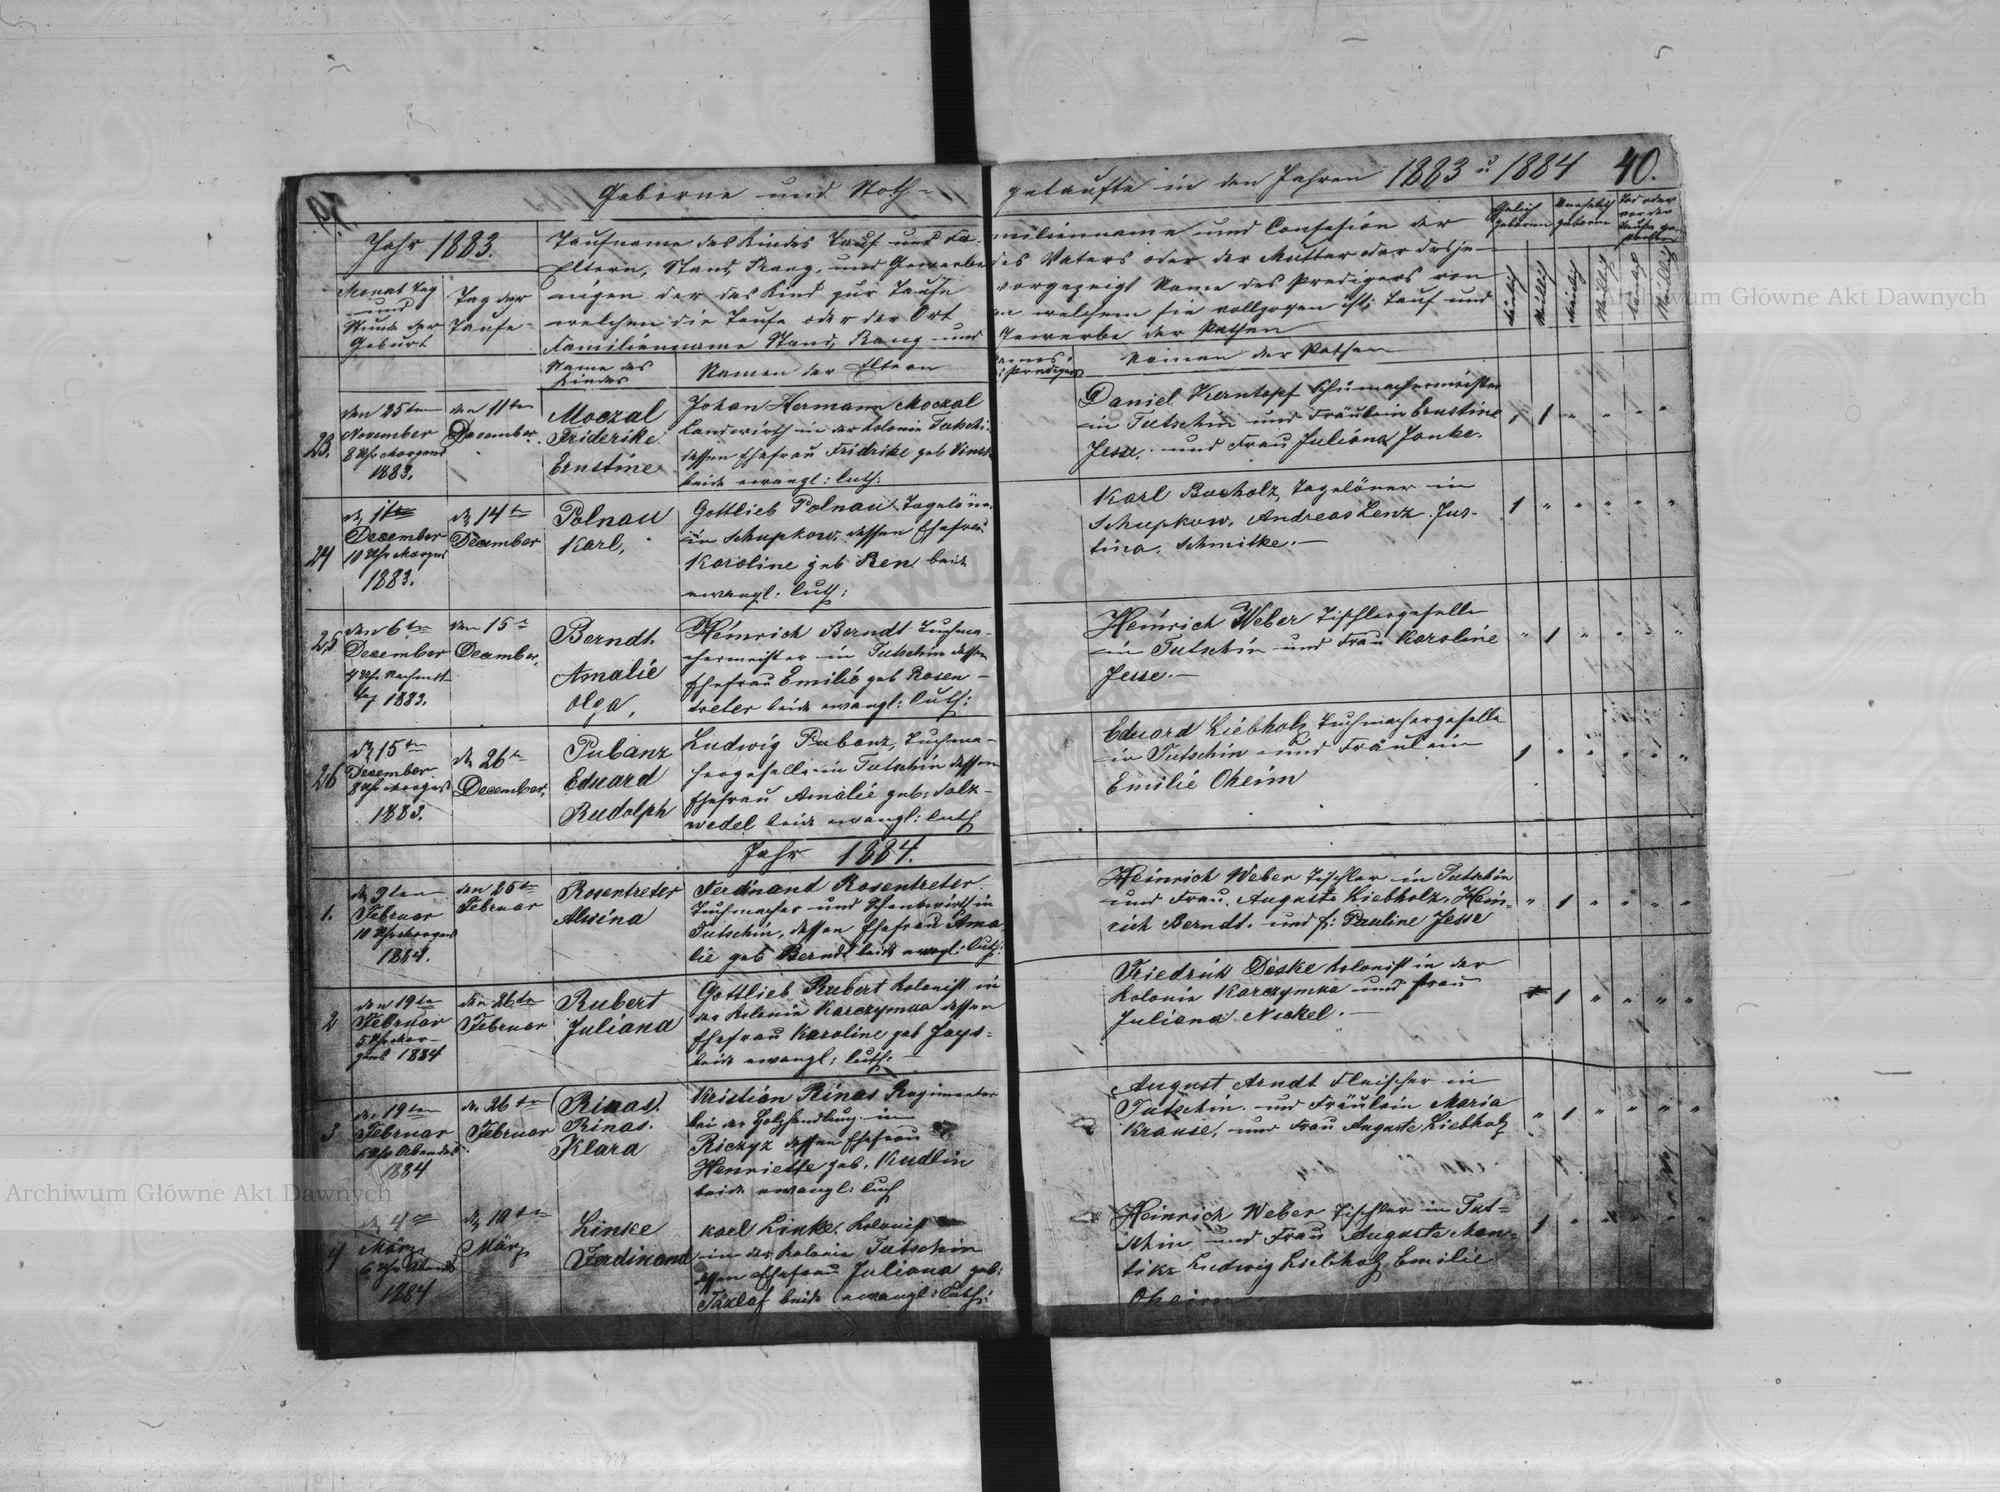 Geborne und Noth-
getaufte in den Jahren 1883 u 1884
40.
Jahr 1883.
Monat Tag
und
Stunde der
Geburt
Tag der
Taufe
Taufname des Kindes Tauf und Fa-
milienname und Confession der
Eltern, Stand, Rang, und Gewerbe
des Vaters oder der Mutter oder desje-
nigen der das Kind zur Taufe
vorgezeigt Name des Predigers von
welchen die Taufe oder der Ort
in welchem sie vollzogen ist; Tauf und
Familienname Stand, Rang und
Gewerbe der Pathen
Ehelich
geboren
Unehelich
geboren
Tod oder
vor der
Taufe ge-
storben
Name des
Kindes
Namen der Eltern
Namen der Pathen
23.
den 25ten
November
8 Uhr Morgens
1883.
den 11ten
December
Moczal
Friderike
Ernstine
Johan Hermann Moczal
Landwirth in der Kolonie Tutschi-
dessen Ehefrau Fridrike geb
beide evangl: luth:
Daniel Kerntopf Schumachermeister
in Tutschin und Fräulein Ernstine
Jesse. und Frau Juliana Janke.
1 1 " " " "
24
d, 1ten
December
10 Uhr Morgens
1883.
d, 14ten
December
Polnau
Karl,
Gottlieb Polnau Tagelöner
in Schupkow, dessen Ehefrau
Karoline geb Ren beide
evangl: luth:
Karl Bucholz, Tagelöner in
Schupkow, Andreas Lenz Jus-
tina. Schmitke.—
1 " " " " "
25
den 6ten
December
4 Uhr Nachmit
tag 1883.
den 15ten
December,
Berndt
Amalie
Olga,
Heinrich Berndt Tuchma-
chermeister in Tutschin dessen
Ehefrau Emilie geb Rosen-
treter beide evangl: luth:
Heinrich Weber Tischlergeselle
in Tutschin und Frau Karoline
Jesse.—
" 1 " " " "
26
d, 15ten
December
8 Uhr Morgens
1883.
d, 26ten
December,
Pubanz
Eduard
Rudolph
Ludwig Pubanz, Tuchma-
chergeselle in Tutschin dessen
Ehefrau Amalie geb: Salz-
wedel beide evangl: luth
Eduard Liebholz Tuchmachergeselle
in Tutschin und Fräulein
Emilie Oheim
1 " " " " "
Jahr 1884.
1.
d, 9ten
Februar
10 Uhr Morgens
1884.
den 25ten
Februar
Rosentreter
Alwina
Ferdinand Rosentreter
Tuchmacher und Schankwirth in
Tutschin, dessen Ehefrau Ama
lie geb Berndt beide evangl: luth:
Heinrich Weber Tischler in Tutschin
und Frau. Auguste Liebholz, Hein-
rich Berndt. und f: Pauline Jesse
" 1 " " " "
2
den 19ten
Februar
5 Uhr Mor-
gens 1884
den 26ten
Februar
Rubert
Juliana
Gottlieb Rubert Kolonist in
der Kolonie Karczymka dessen
Ehefrau Karoline geb Jays-
beide evangl: luth:—
Friedrik Deske Kolonist in der
Kolonie Karczymka und Frau
Juliana Nickel.—
1 " " " "
3
de, 19ten
Februar
6 Uhr Abendes
1884
de, 26ten
Februar
Rinas.
Rinas.
Klara
Kristian Rinas Regimenter
bei der Holzhandlung in
Riczyz dessen Ehefrau
Henriette geb. Kudlin
beide evangl: luth
August Arndt Fleischer in
Tutschin. und Fräulein Maria
Krause, und Frau Auguste Liebholz
" 1 " " " "
4
d, 4ten
März
6 Uhr Abends
1884
d, 10ten
März
Linke
Ferdinand
Karl Linke, Kolonist
in der Kolonie Tutschin
dessen Ehefrau Juliana geb:
Tazlaf beide evangl: luth:
Heinrich Weber Tischler in Tut-
schin und Frau Auguste Man-
tike Ludwig Liebholz Emilie
Oheim
1 " " " " "
Archiwum Główne Akt Dawnych
Archiwum Główne Akt Dawnych